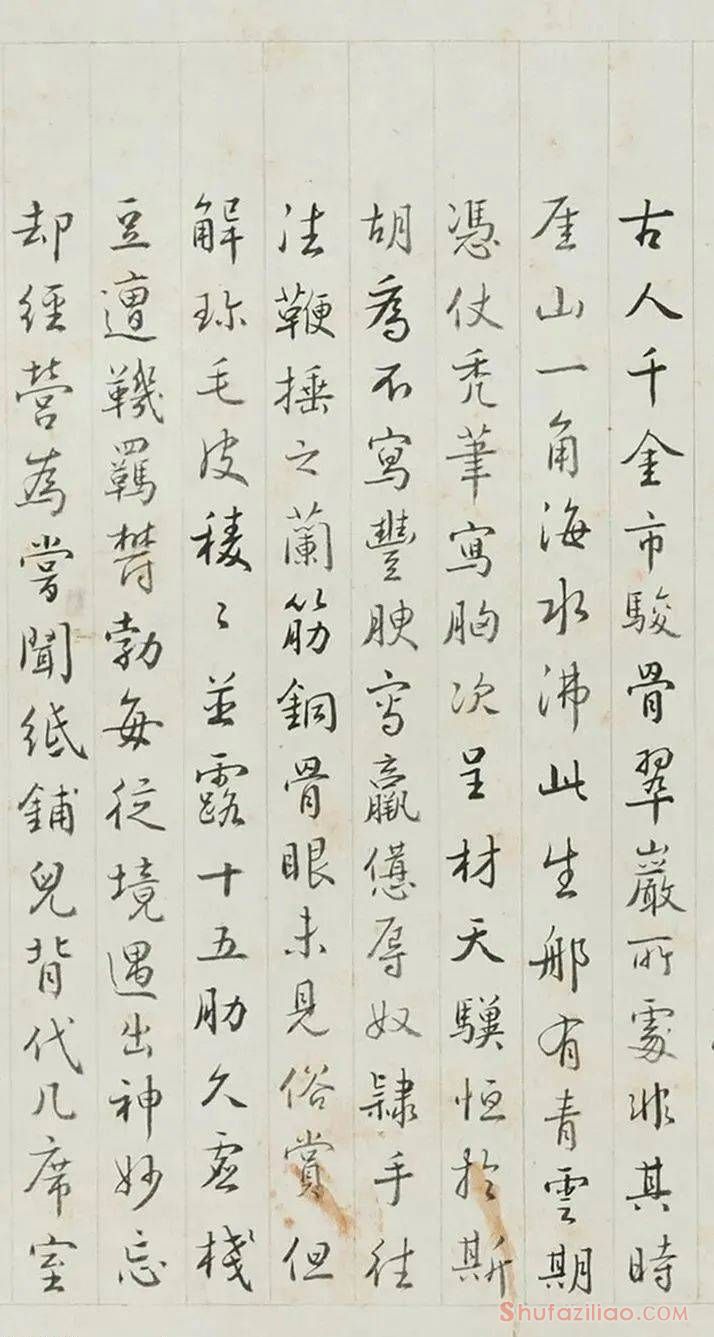 古人千金市駿骨翠巖所處非其時
厓山一角海水沸此生那有青雲期
憑仗禿筆寫胸次呈材天驥恒於斯
胡為不寫豐腴寫羸憊辱奴隸手往
往鞭捶之蘭筋銅骨眼未見俗賞但
解珍毛皮稜〻並露十五肋久虛棧
豆遭鞿羈欝勃每從境遇出神妙忘
却經營為嘗聞紙鋪兒背代几席室
Shufaziliao.com